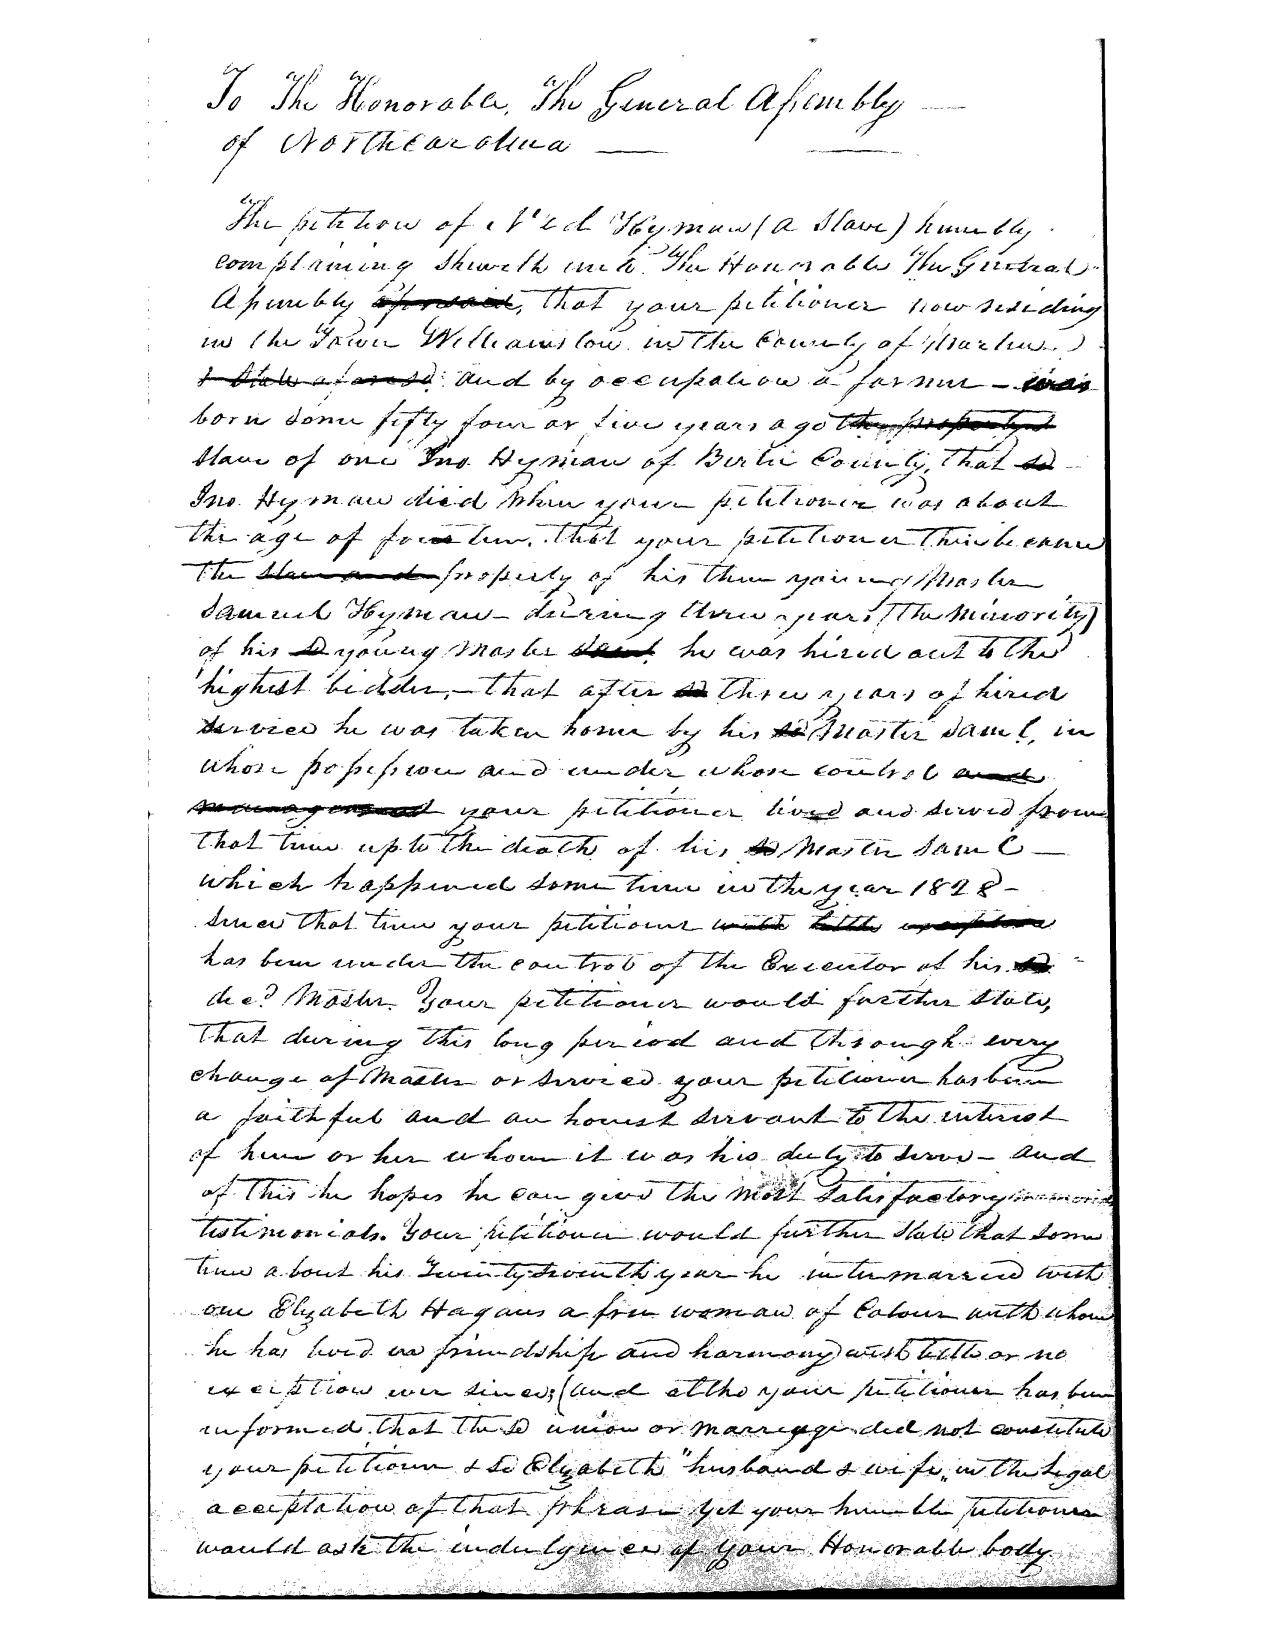 To The Honorable, The General Assembly
of North Carolina
The petition of Ned Hyman (a Slave) humbly
complaining sheweth unto The Honorable The General
Assembly aforesaid, that your petitioner now residing
in the Town Williamston in the County of Martin
& State aforesd. and by occupation a farmer – was
born some fifty four or five years ago the property of
Slave of one Jno. Hyman of Bertie County, that sd
Jno. Hyman died when your petitioner was about
the age of fourteen. that your petitioner then became
the slave and property of his then young Master
Samuel Hyman – during three years (the minority)
of his sd young Master Saml he was hired out to the
highest bidder, – that after sd three years of hired
service he was taken home by his sd Master Saml, in
whose possession and under whose control and
management your petitioner lived and served from
that time up to the death of his sd Master Saml –
which happened some time in the year 1828 –
since that time your petitioner with little exception
has been under the control of the Executor of his sd
decd Master. Your petitioner would further state,
that during this long period and through every
change of Master or service your petitioner has been
a faithful and an honest servant to the interest
of him or her whom it was his duty to serve – and
of this he hopes he can give the most satisfactory
testimonials. Your petitioner would further state that some
time about his Twenty seventh year he intermarried with
one Elizabeth Hagans a free woman of Colour with whom
he has lived in friendship and harmony with little or no
exception ever since; (and altho your petitioner has been
informed that the sd union or marriage did not constitute
your petitioner & sd Elizabeth "husband & wife," in the legal
acceptation of that phrase yet your humble petitioner
would ask the indulgence of your Honorable body